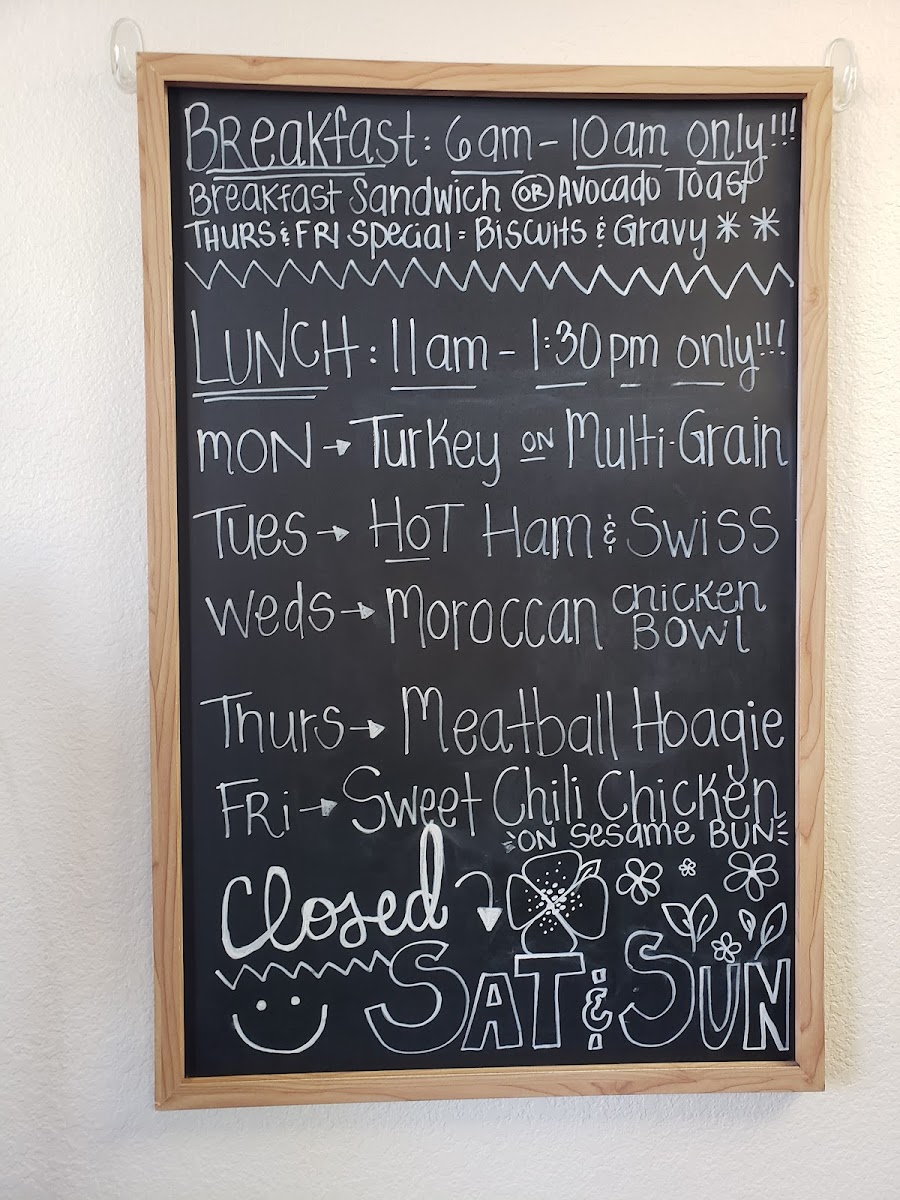 Breakfast: 6am - 10am only!!!
Breakfast Sandwich OR Avocado Toast
THURS & FRI Special = Biscuits & Gravy * *
LUNCH: 11am - 1:30pm only!!!
MON → Turkey ON Multi-Grain
Tues → HOT Ham & Swiss
Weds → Moroccan Chicken Bowl
Thurs → Meatball Hoagie
FRi → Sweet Chili Chicken
ON Sesame BUN
Closed
SAT & SUN